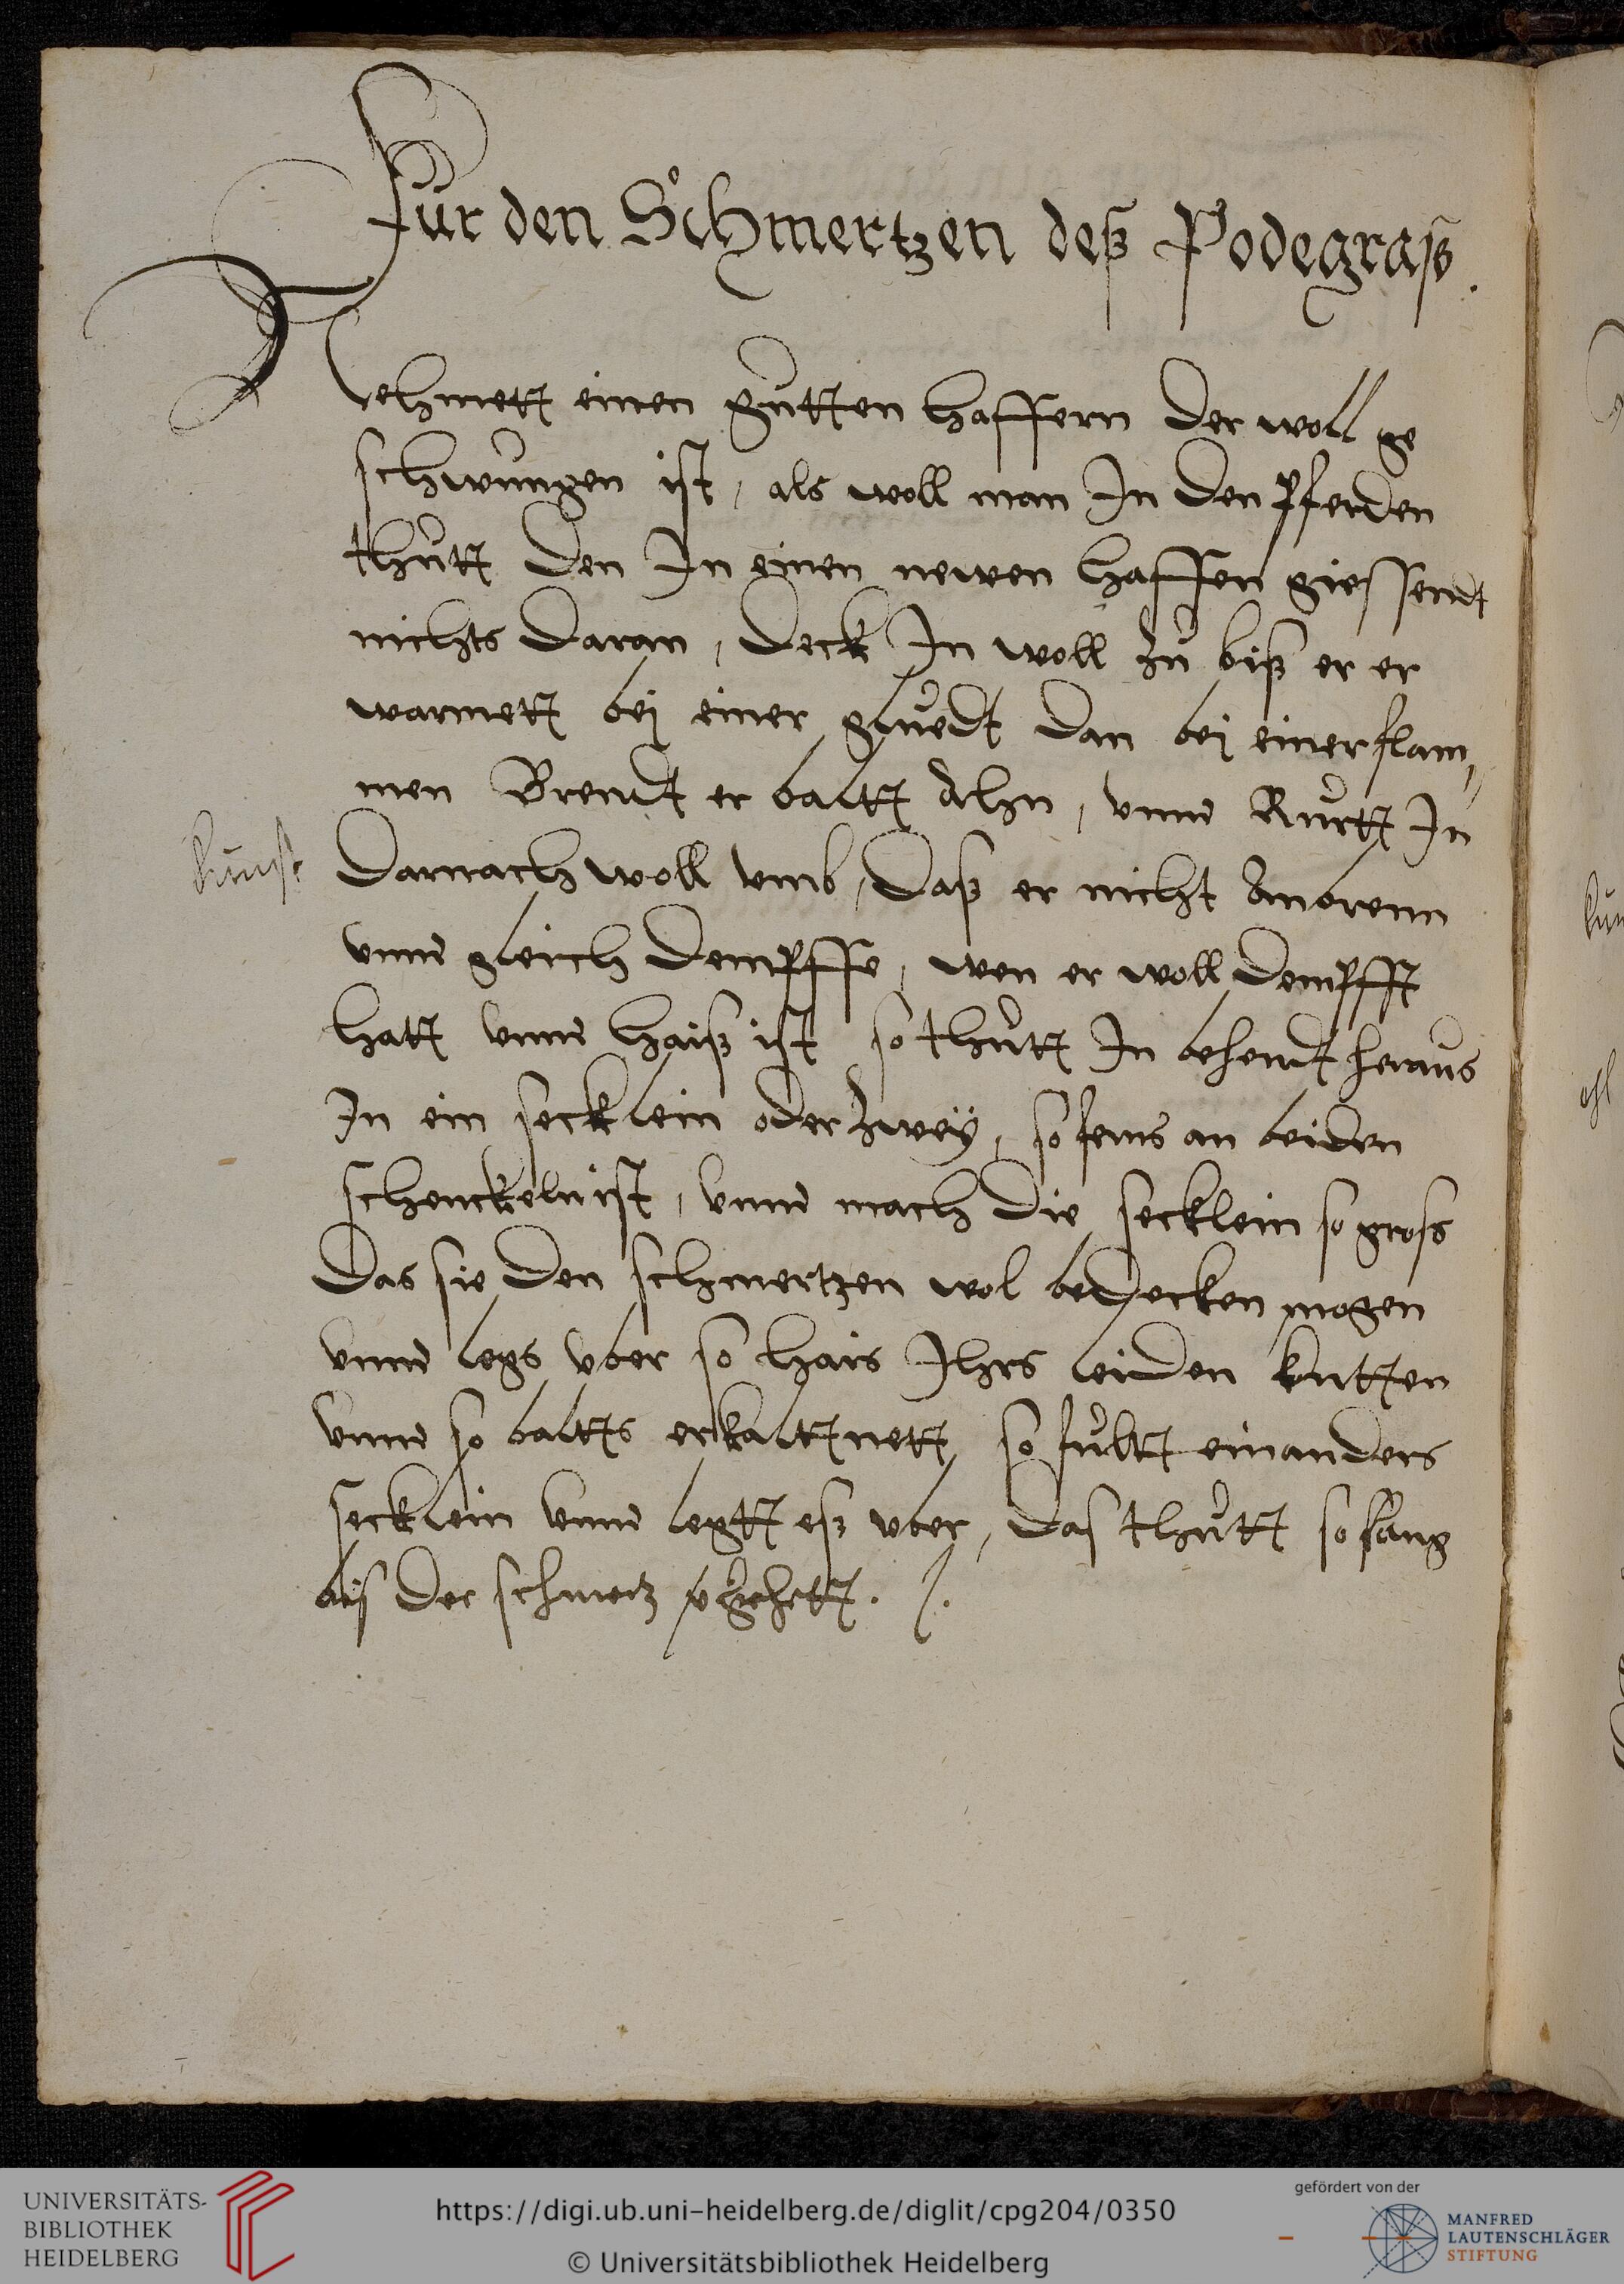 Für den Schmertzen deß Podegraß.
Nehmett einen gutten haffern der woll ge
schwungen ist, als woll man In den pferden
thutt den In einen newen haffen giessendt
nichts daran, deck In woll zu biß er er
warmett bej einer gluedt dan bej einer flam,
men Brendt er baltt Ahn, vnnd Rurtt In
kunst
darnach woll vmb, daß er nicht Anbrenn
vnnd gleich dempffe, wen er woll dempfft
hatt vnnd haiß ist so thutt In behendt heraus
In ein secklein oder zwey, so sems an beiden
schenckeln ist, vnnd mach die secklein so gross
das sie den schmertzen wol bedecken mogen
vnnd legs vber so hais Ihrs leiden kutten
vnnd so baltts erkalttnett so fultt ein anders
secklein vnnd legtt eß vber, das thutt so lang
bis der schmertz vergehett. /.
UNIVERSITÄTS-
BIBLIOTHEK
HEIDELBERG
https://digi.ub.uni-heidelberg.de/diglit/cpg204/0350
© Universitätsbibliothek Heidelberg
gefördert von der
MANFRED
LAUTENSCHLÄGER
STIFTUNG